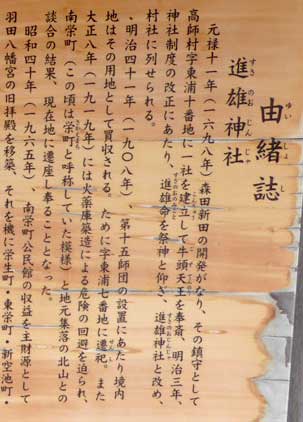 由緒誌
ゆい しょ し
進雄神社
すさ の おじんじゃ
元禄十一年（一六九八年）森田新田の開発がなり、その鎮守として
高師村字東浦十番地に一社を建立して牛頭天王を奉斎、明治三年、
神社制度の改正にあたり、進雄命を祭神と仰ぎ、進雄神社と改め、
村社に列せられる。
、明治四十一年（一九〇八年）、第十五師団の設置にあたり境内
地はその用地として買収される。ために字東浦七番地に遷祀。また
大正八年（一九一九年）には火薬庫築造による危険の回避を迫られ、
南栄町（この頃は栄町と呼称していた模様）と地元集落の北山との
談合の結果、現在地に遷座し奉ることとなった。
昭和四十年（一九六五年）、南栄町公民館の収益を主財源として
羽田八幡宮の旧拝殿を移築、それを機に学生町・東栄町・新空池町・